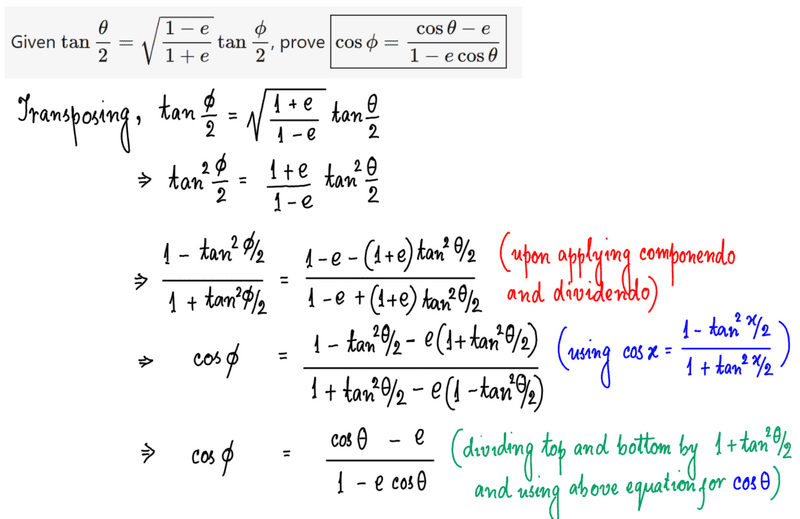 Given tan θ/2 = √((1 − e)/(1 + e)) tan ϕ/2, prove cos ϕ = (cos θ − e)/(1 − e cos θ)
Transposing, tan ϕ/2 = √((1 + e)/(1 − e)) tan θ/2
⇒ tan² ϕ/2 = (1+e)/(1−e) tan² θ/2
⇒ (1 − tan² ϕ/2)/(1 + tan² ϕ/2) = (1−e − (1+e) tan² θ/2)/(1−e + (1+e) tan² θ/2) (upon applying componendo
and dividendo)
⇒ cos ϕ = (1 − tan² θ/2 − e(1+tan² θ/2))/(1 + tan² θ/2 − e(1 −tan² θ/2)) (using cos x = (1 − tan² x/2)/(1 + tan² x/2))
⇒ cos ϕ = (cos θ − e)/(1 − e cos θ) (dividing top and bottom by 1+tan² θ/2
and using above equation for cos θ)